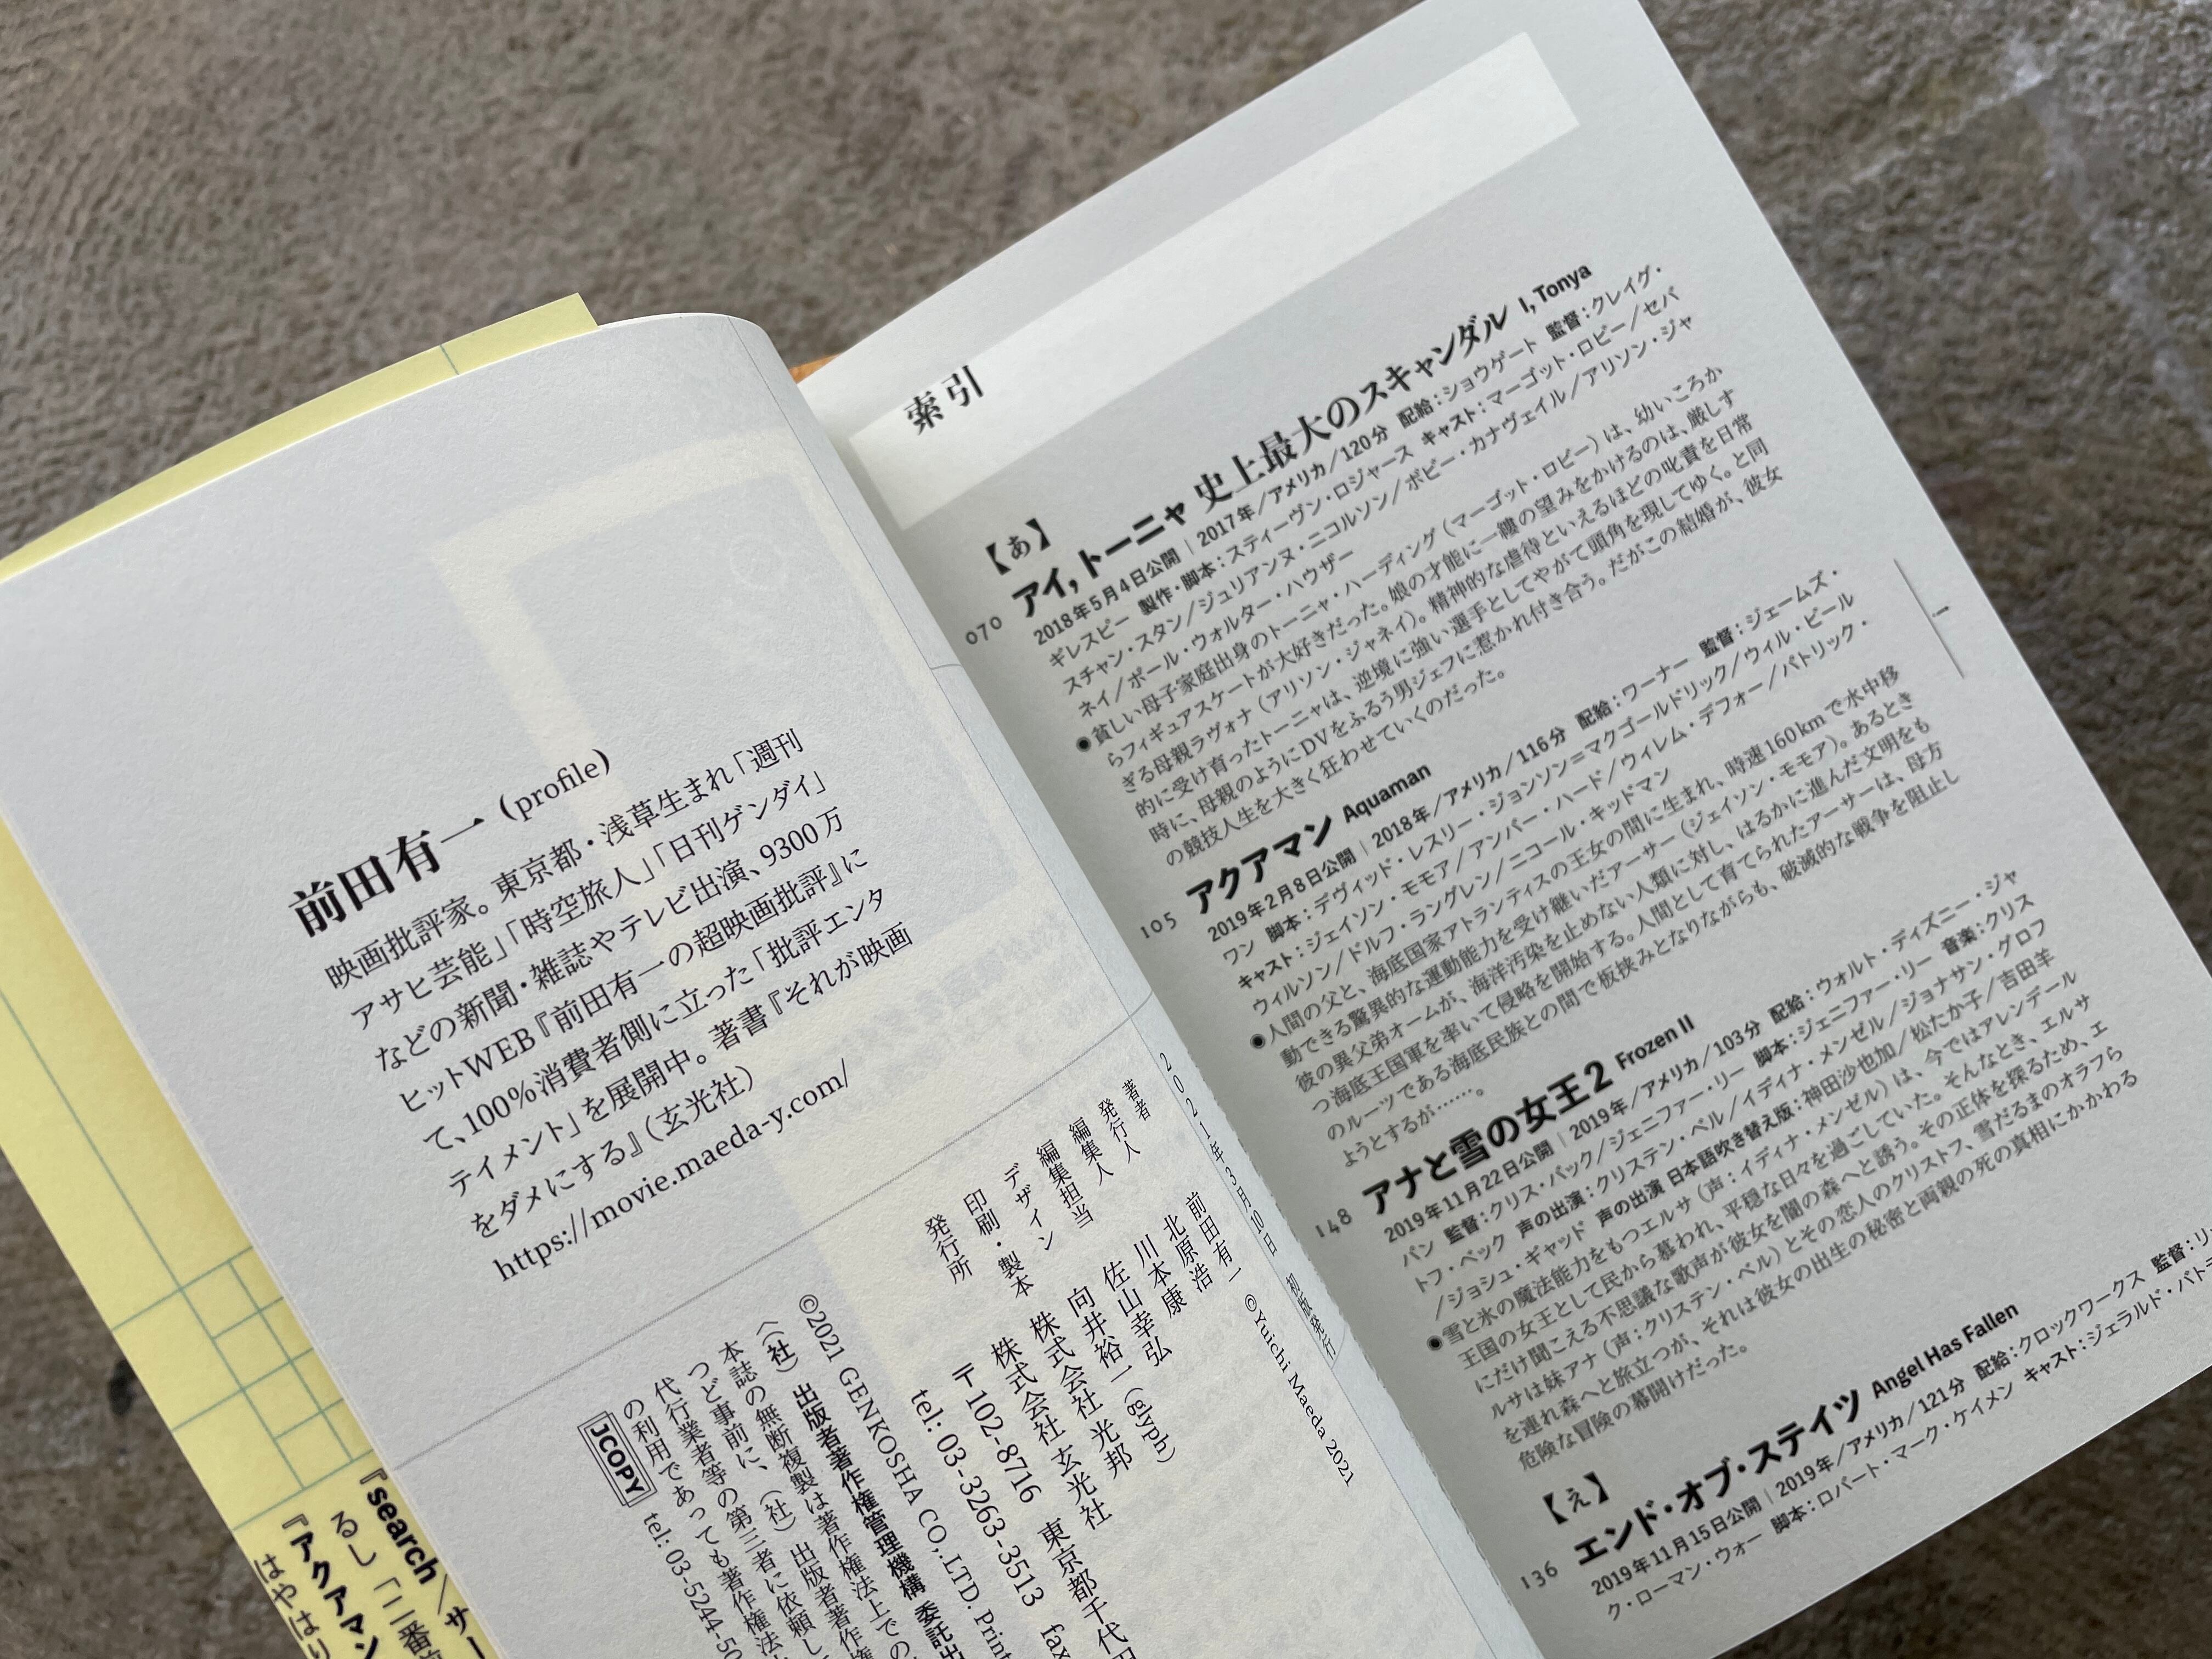 前田有一 (profile)
映画批評家。東京都・浅草生まれ「週刊
アサヒ芸能」「時空旅人」「日刊ゲンダイ」
などの新聞・雑誌やテレビ出演、9300万
ヒットWEB『前田有一の超映画批評』に
て、100%消費者側に立った「批評エンタ
テイメント」を展開中。著書『それが映画
をダメにする』(玄光社)
https://movie.maeda-y.com/
2021年3月10日 初版発行
著者 前田有一 ©Yuichi Maeda 2021
発行人 北原浩
編集人 川本康
編集担当 佐山幸弘
デザイン 向井裕一(glyph)
印刷・製本 株式会社 光邦
発行所 株式会社 玄光社
〒102-8716 東京都千代田
tel: 03-3263-3513 fax
©2021 GENKOSHA CO.,LTD. Print
〈(社)出版者著作権管理機構 委託出
本誌の無断複製は著作権法上での
つど事前に、(社)出版者著作権
代行業者等の第三者に依頼し
の利用であっても著作権法
JCOPY tel: 03-5244-50
『search/サー
るし「二番
『アクアマン
はやはり
索引
【あ】
070 アイ,トーニャ 史上最大のスキャンダル I, Tonya
2018年5月4日公開|2017年/アメリカ/120分 配給:ショウゲート 監督:クレイグ・
ギレスピー 製作・脚本:スティーヴン・ロジャース キャスト:マーゴット・ロビー/セバ
スチャン・スタン/ジュリアンヌ・ニコルソン/ボビー・カナヴェイル/アリソン・ジャ
ネイ/ポール・ウォルター・ハウザー
●貧しい母子家庭出身のトーニャ・ハーディング(マーゴット・ロビー)は、幼いころか
らフィギュアスケートが大好きだった。娘の才能に一縷の望みをかけるのは、厳しす
ぎる母親ラヴォナ(アリソン・ジャネイ)。精神的な虐待といえるほどの叱責を日常
的に受け育ったトーニャは、逆境に強い選手としてやがて頭角を現してゆく。と同
時に、母親のようにDVをふるう男ジェフに惹かれ付き合う。だがこの結婚が、彼女
の競技人生を大きく狂わせていくのだった。
105 アクアマン Aquaman
2019年2月8日公開|2018年/アメリカ/116分 配給:ワーナー 監督:ジェームズ・
ワン 脚本:デヴィッド・レスリー・ジョンソン=マクゴールドリック/ウィル・ビール
キャスト:ジェイソン・モモア/アンバー・ハード/ウィレム・デフォー/パトリック・
ウィルソン/ドルフ・ラングレン/ニコール・キッドマン
●人間の父と、海底国家アトランティスの王女の間に生まれ、時速160kmで水中移
動できる驚異的な運動能力を受け継いだアーサー(ジェイソン・モモア)。あるとき
彼の異父弟オームが、海洋汚染を止めない人類に対し、はるかに進んだ文明をも
つ海底王国軍を率いて侵略を開始する。人間として育てられたアーサーは、母方
のルーツである海底民族との間で板挟みとなりながらも、破滅的な戦争を阻止し
ようとするが……。
148 アナと雪の女王2 Frozen II
2019年11月22日公開|2019年/アメリカ/103分 配給:ウォルト・ディズニー・ジャ
パン 監督:クリス・バック/ジェニファー・リー 脚本:ジェニファー・リー 音楽:クリス
トフ・ベック 声の出演:クリステン・ベル/イディナ・メンゼル/ジョナサン・グロフ
/ジョシュ・ギャッド 声の出演 日本語吹き替え版:神田沙也加/松たか子/吉田羊
●雪と氷の魔法能力をもつエルサ(声:イディナ・メンゼル)は、今ではアレンデール
王国の女王として民から慕われ、平穏な日々を過ごしていた。そんなとき、エルサ
にだけ聞こえる不思議な歌声が彼女を闇の森へと誘う。その正体を探るため、エ
ルサは妹アナ(声:クリステン・ベル)とその恋人のクリストフ、雪だるまのオラフら
を連れ森へと旅立つが、それは彼女の出生の秘密と両親の死の真相にかかわる
危険な冒険の幕開けだった。
【え】
136 エンド・オブ・ステイツ Angel Has Fallen
2019年11月15日公開|2019年/アメリカ/121分 配給:クロックワークス 監督:リッ
ク・ローマン・ウォー 脚本:ロバート・マーク・ケイメン キャスト:ジェラルド・バトラ
i